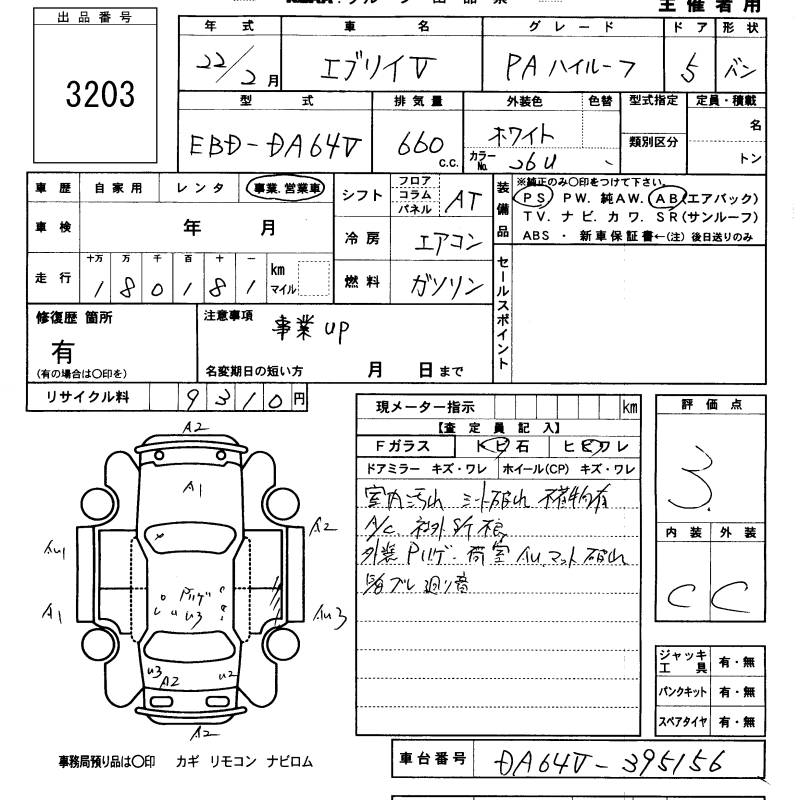 主催者用
出品番号
3203
年式 車名 グレード ドア 形状
22/2月 エブリイV PAハイルーフ 5 バン
型式 排気量 外装色 色替 型式指定 定員・積載
EBD-DA64V 660 c.c. ホワイト カラーNo. 26U 類別区分 名
トン
車歴 自家用 レンタ 事業.営業車
車検 年 月
走行 十万 万 千 百 十 一 km マイル
1 8 0 1 8 1
シフト フロア コラム パネル AT
冷房 エアコン
燃料 ガソリン
装備品
※純正のみ〇印をつけて下さい。
PS PW. 純AW. AB(エアバック)
TV. ナビ. カワ. SR(サンルーフ)
ABS ・ 新車保証書←(注) 後日送りのみ
セールスポイント
修復歴 箇所
有
(有の場合は〇印を)
注意事項 事業up
名変期日の短い方 月 日まで
リサイクル料 9310円
現メーター指示 km
【査定員記入】
Fガラス トビ石 ヒビワレ
ドアミラー キズ・ワレ ホイール(CP) キズ・ワレ
室内汚れ シート破れ
A/C
外装 荷室 AU. マット破れ
評価点
3.
内装 外装
C C
ジャッキ工具 有・無
パンクキット 有・無
スペアタイヤ 有・無
A2
A1
A2
AU1
A1
AU3
U3
U3
A2
U2
A2
事務局預り品は〇印 カギ リモコン ナビロム
車台番号 DA64V-395156